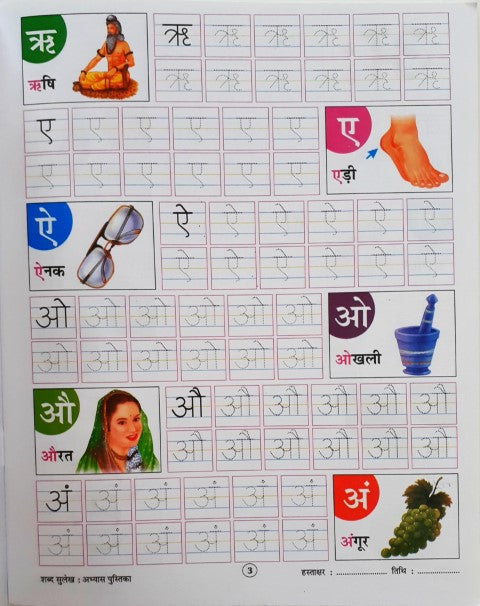 ऋ ऋ ऋ ऋ ऋ ऋ ऋ
ऋषि ऋ ऋ ऋ ऋ ऋ ऋ
ए ए ए ए ए ए ए
ए ए ए ए ए ए एड़ी
ऐ ऐ ऐ ऐ ऐ ऐ ऐ
ऐनक ऐ ऐ ऐ ऐ ऐ ऐ
ओ ओ ओ ओ ओ ओ ओ
ओ ओ ओ ओ ओ ओ ओखली
औ औ औ औ औ औ औ
औरत औ औ औ औ औ औ
अं अं अं अं अं अं अं
अं अं अं अं अं अं अंगूर
शब्द सुलेख : अभ्यास पुस्तिका 3 हस्ताक्षर : .................... तिथि : ....................